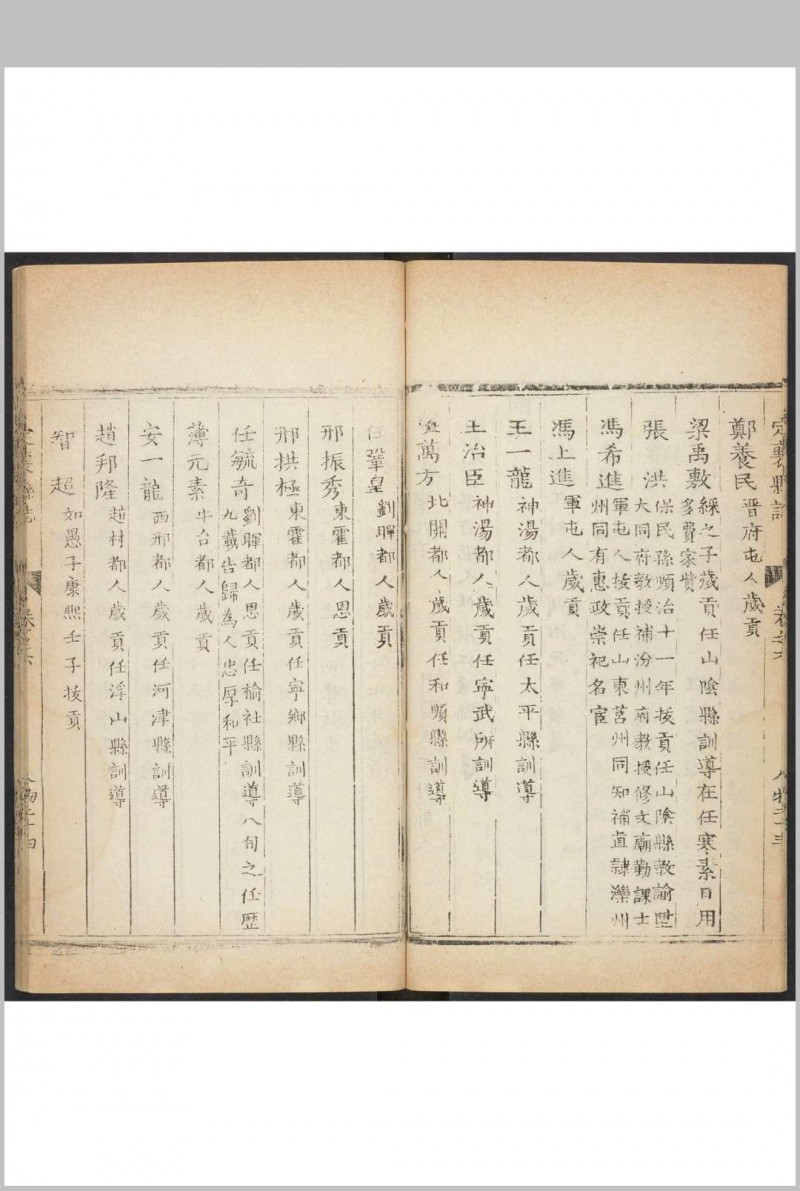 定襄縣志
卷之六
人物二十三
鄭養民 晋府屯人歲貢
梁禹敷 綵之子歲貢任山陰縣訓導在任寒素日用
多費家貲
張洪 保民孫順治十一年拔貢任山陰縣教諭陞
大同府教授補汾州府教授修文廟勤課士
馮希進 軍屯人拔貢任山東莒州同知補直隸灤州
州同有惠政崇祀名宦
馮上進 軍屯人歲貢
王一龍 神湯都人歲貢任太平縣訓導
王治臣 神湯都人歲貢任寧武所訓導
萬方 北關都人歲貢任和順縣訓導
任鞏皇 劉暉都人歲貢
邢振秀 東霍都人恩貢
邢拱極 東霍都人歲貢任寧鄉縣訓導
任毓奇 劉暉都人恩貢任榆社縣訓導八旬之任歷
九載告歸為人忠厚和平
薄元素 牛台都人歲貢
安一龍 西邢都人歲貢任河津縣訓導
趙邦隆 趙村都人歲貢任浮山縣訓導
智超 如愚子康熙壬子拔貢
定襄縣志
卷之六
人物二十四